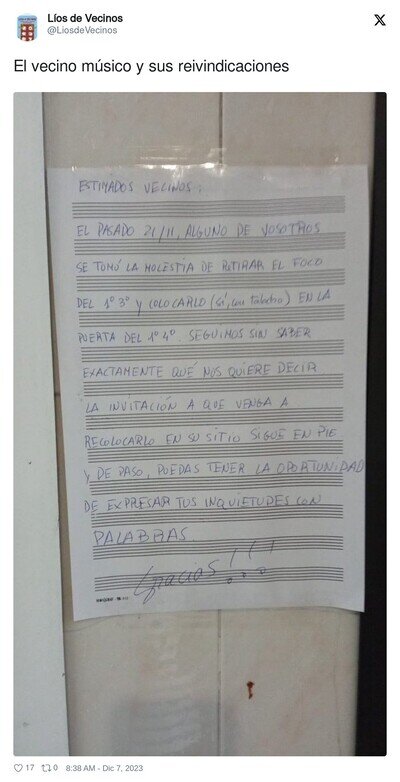 Líos de Vecinos
@LiosdeVecinos
X
El vecino músico y sus reivindicaciones
ESTIMADOS VECINOS:
EL PASADO 21/11, ALGUNO DE VOSOTROS
SE TOMÓ LA MOLESTIA DE RETIRAR EL FOCO
DEL 1º 3º Y COLOCARLO (sí, con taladro) EN LA
PUERTA DEL 1º 4º. SEGUIMOS SIN SABER
EXACTAMENTE QUÉ NOS QUIERE DECIR.
LA INVITACIÓN A QUE VENGA A
RECOLOCARLO EN SU SITIO SIGUE EN PIE
Y DE PASO, PUEDAS TENER LA OPORTUNIDAD
DE EXPRESAR TUS INQUIETUDES CON
PALABRAS.
Gracias!!!
17 0 8:38 AM - Dic 7, 2023